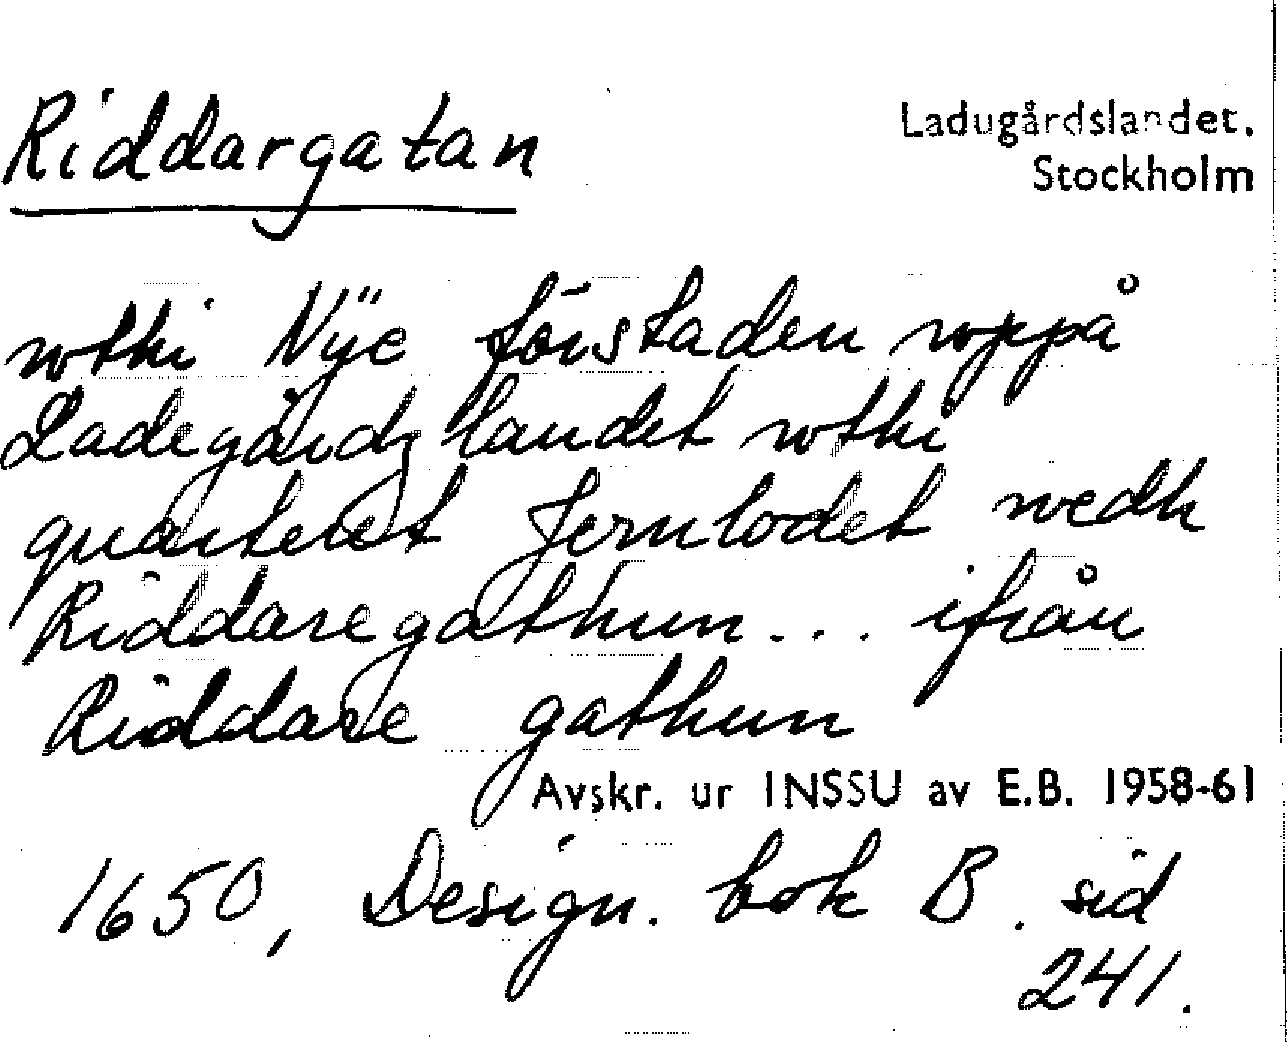 Riddargatan
Ladugårdslandet.
Stockholm
wthi Nÿe förstaden wppå
Ladegårdz landet wthi
quarteret Jernlodet wedh
Riddaregathun... ifrån
Riddare gathun
Avskr. ur INSSU av E.B. 1958-61
1650, Design. bok B. sid
241.